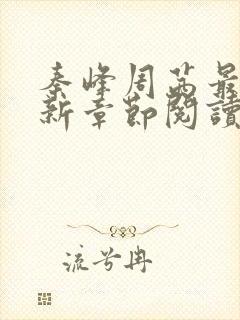 秦峰周茜最
新章節閱讀
流兮冉